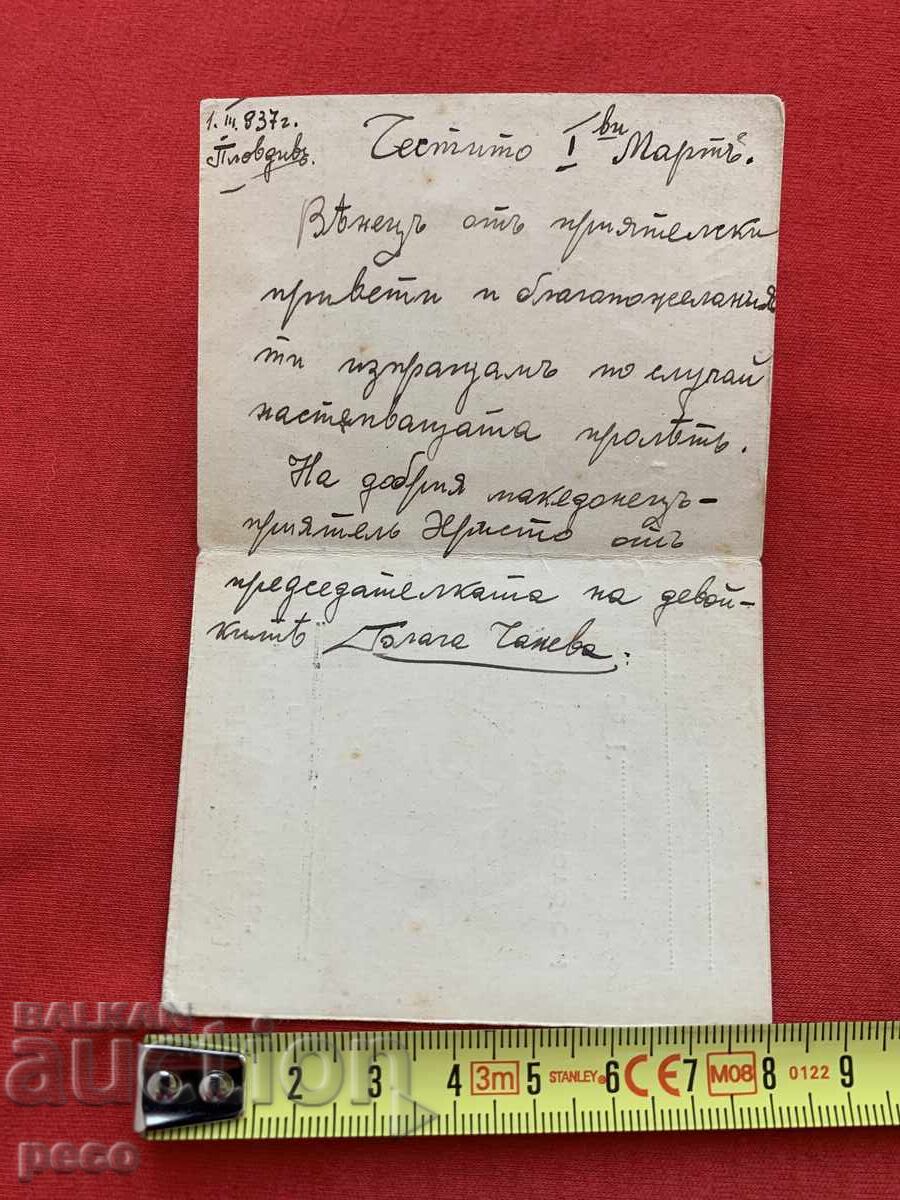 1. III. 937 г.
Пловдивъ.
Честито Iви Мартъ.
Вѣнецъ отъ приятелски
привети и благопожелания
ти изпращамъ по случай
настѫпващата пролѣть.
На добрия македонецъ-
приятель Христо отъ
председателката на девой-
китѣ Чанева.
BALKAN
auction
peco
2 3 4 3m 5 STANLEY 6 CE 7 M08 8 0122 9